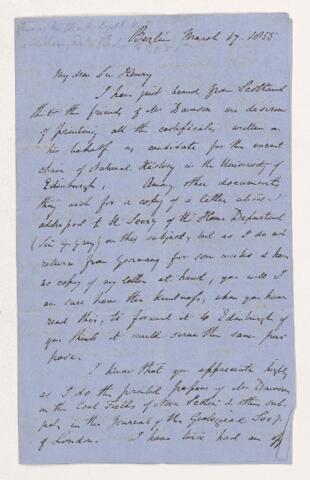 Berlin March 17. 1855
My dear Sir Henry
I have just heard from Scotland
that the friends of Mr Dawson are desirous
of printing all the certificates written on
his behalf as candidate for the vacant
chair of Natural History in the University of
Edinburgh. Among other documents
they wish for a copy of a letter which I
addressed to the Secry of the Home Department
(Sir G. Grey) on this subject, but as I do not
return from Germany for some weeks & have
no copy of my letter at hand, you will I
am sure have the kindness, when you have
read this, to forward it to Edinburgh if
you think it would serve the same pur
pose.
I know that you appreciate highly
as I do the printed papers of Mr Dawson
on the Coal Fields of Nova Scotia & other sub-
jects in the Journal of the Geological Socy
of London. I have twice had an opp